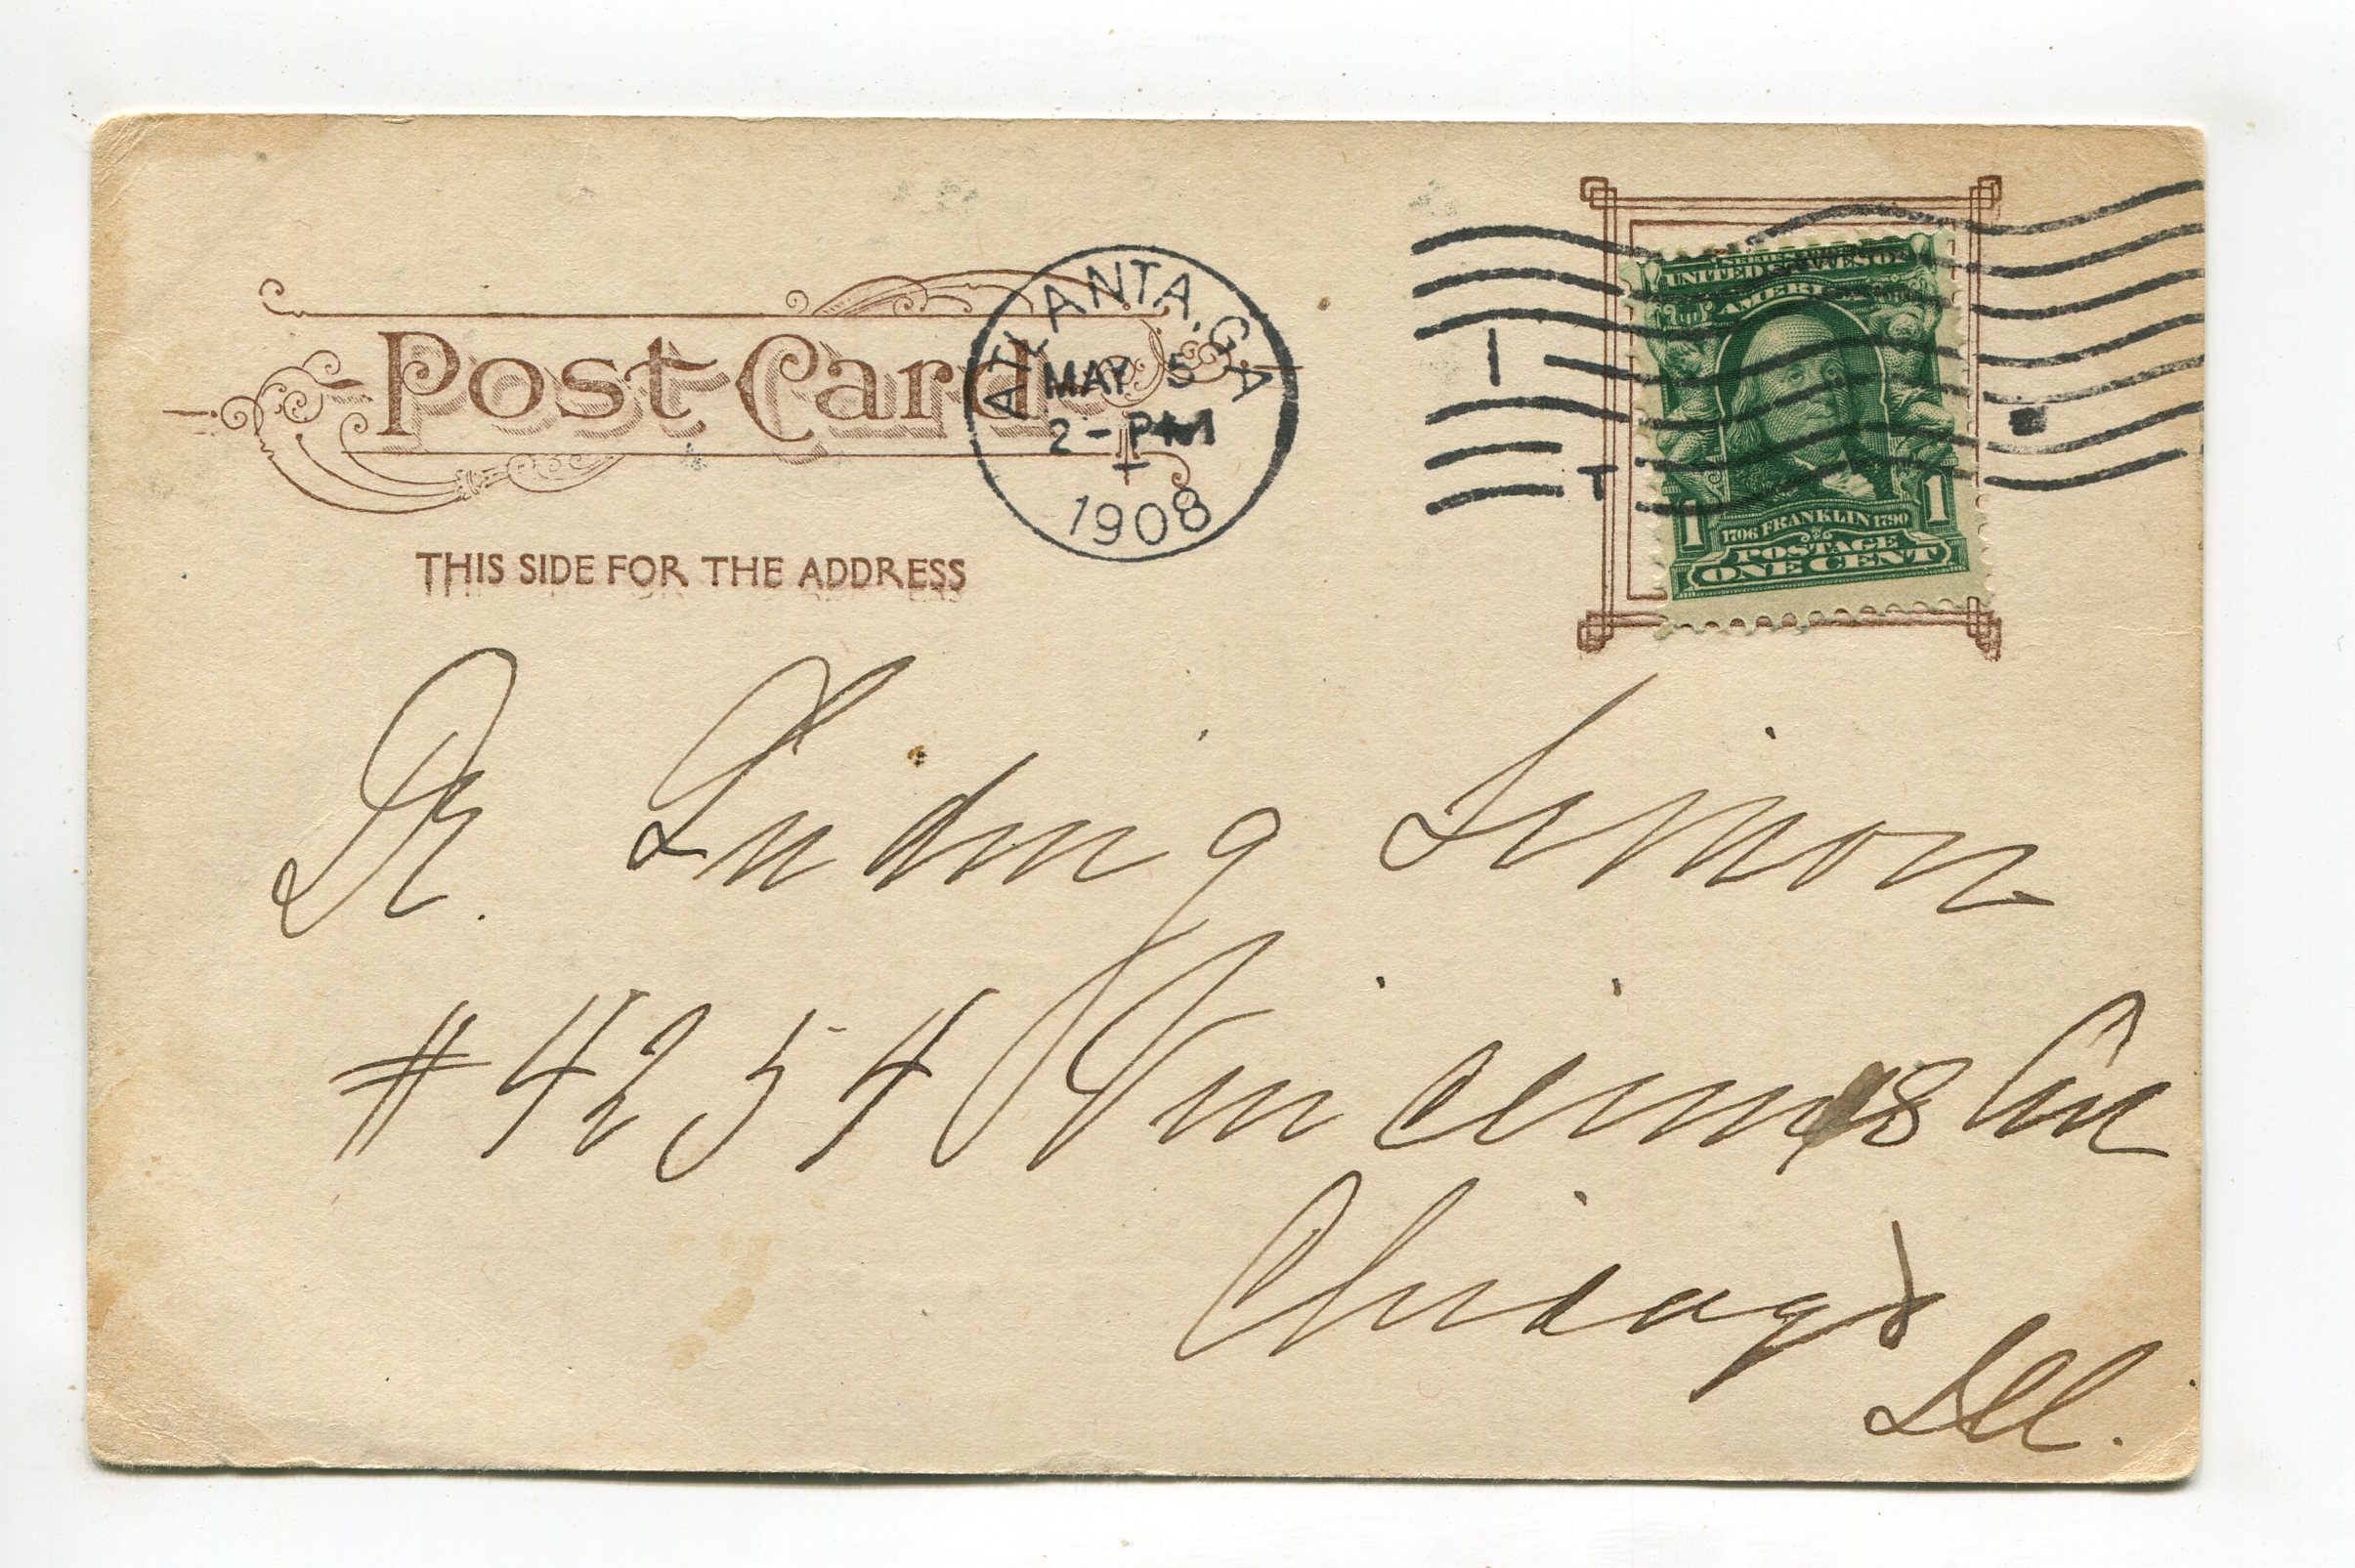 Post Card
ATLANTA, GA
MAY 5
2-PM
1908
I
T
SERIES 1902
UNITED STATES OF
AMERICA
1706 FRANKLIN 1790
1 1
POSTAGE
ONE CENT
THIS SIDE FOR THE ADDRESS
Dr. Ludwig Simon
# 4254 Ave
Chicago
Ill.